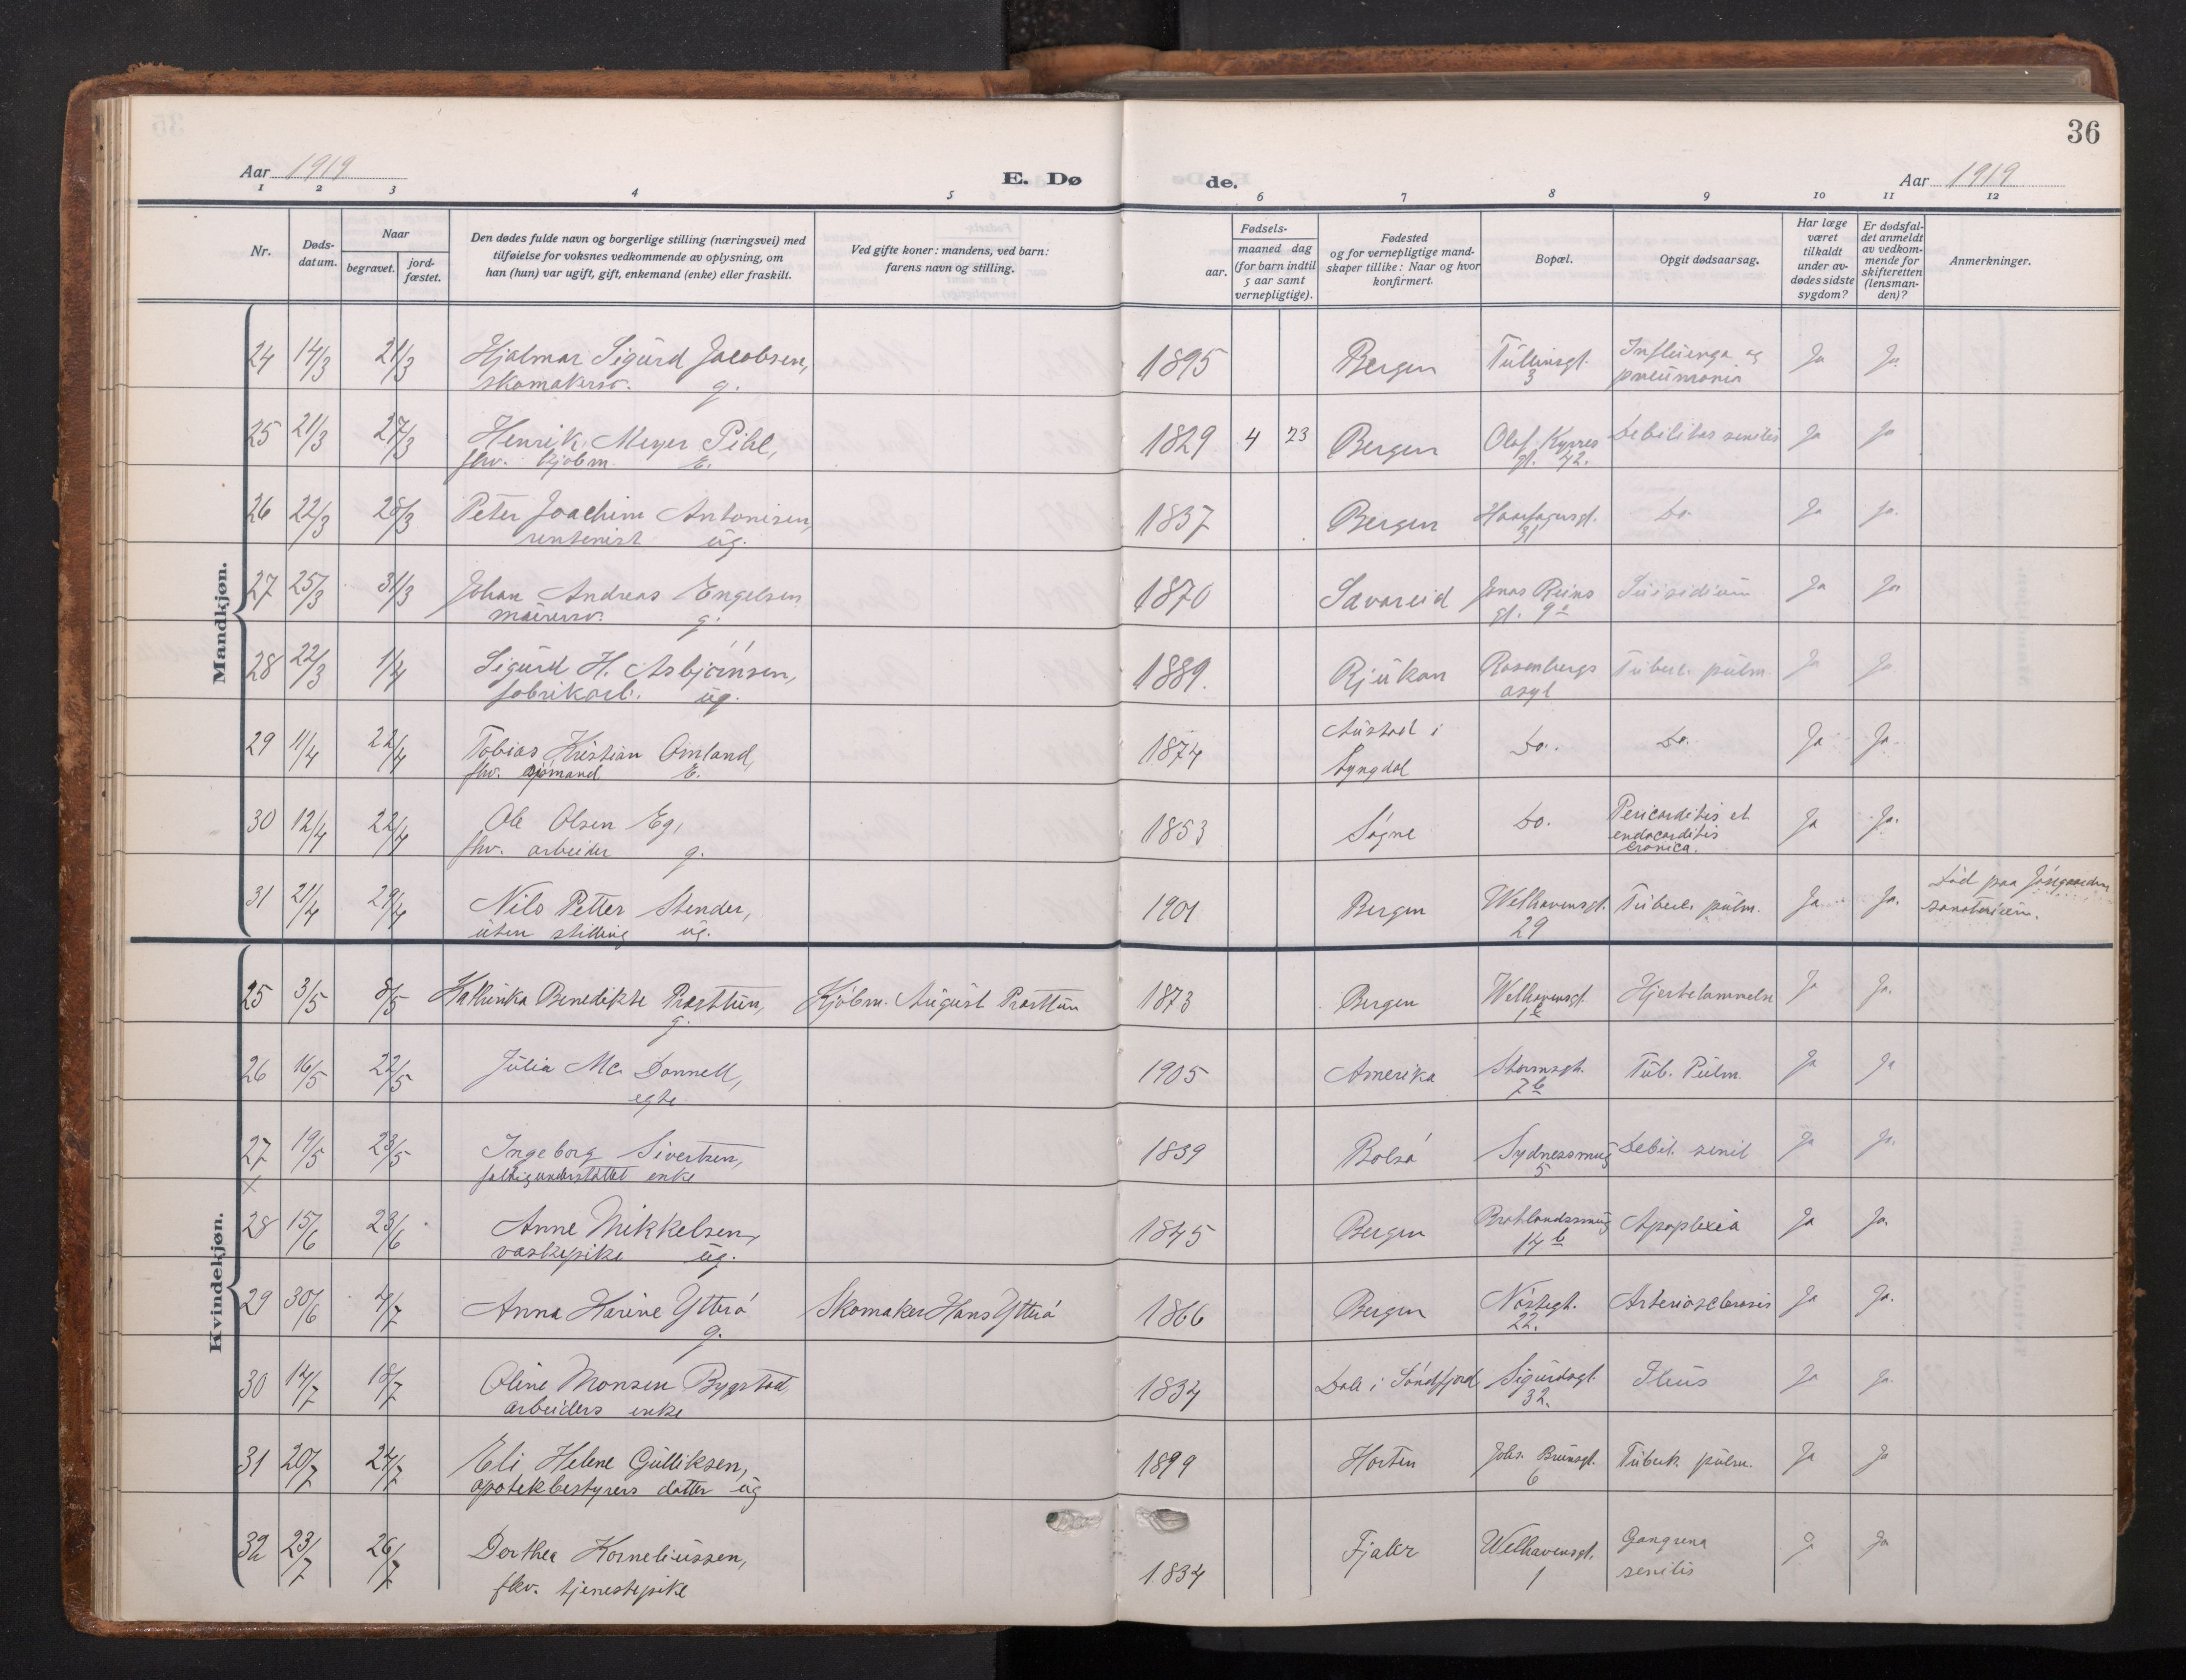 36
Aar 1919
E. Dø
de.
Aar 1919
1 2 3 4 5 6 7 8 9 10 11 12
Nr.
Døds-
datum.
Naar
begravet.
jord-
fæstet.
Den dødes fulde navn og borgerlige stilling (næringsvei) med
tilføielse for voksnes vedkommende av oplysning, om
han (hun) var ugift, gift, enkemand (enke) eller fraskilt.
Ved gifte koner: mandens, ved barn:
farens navn og stilling.
Fødsels-
aar.
maaned dag
(for barn indtil
5 aar samt
vernepligtige).
Fødested
og for vernepligtige mand-
skaper tillike: Naar og hvor
konfirmert.
Bopæl.
Opgit dødsaarsag.
Har læge
været
tilkaldt
under av-
dødes sidste
sygdom?
Er dødsfal-
det anmeldt
av vedkom-
mende for
skifteretten
(lensman-
den)?
Anmerkninger.
Mandkjøn.
24 14/3 21/3 Hjalmar Sigurd Jacobsen, 1895 Bergen Tullinsgt. Influenza og Ja Ja
skomakersv. g. 3 pneumonia
25 21/3 27/3 Henrik Meyer Pihl, 1829 4 23 Bergen Olaf Kyrres Debilitas senilis Ja Ja
fhv. kjøbm. E. gt. 42.
26 22/3 28/3 Peter Joachim Antonisen, 1837 Bergen Haarfagersgt. Do. Ja Ja
rentenist ug. 31
27 25/3 31/3 Johan Andreas Engelsen 1870 Savareid Jonas Reins Suisidium Ja Ja
murersv. g. gt. 9a
28 22/3 1/4 Sigurd H. Asbjörnsen, 1889. Rjukan Rosenbergs Tuberk. pulm. Ja Ja
fabrikarb. ug. asyl
29 11/4 22/4 Tobias Kristian Omland, 1874 Austad i Do. Do. Ja Ja
fhv. sjømand E. Lyngdal
30 12/4 22/4 Ole Olsen Eg, 1853 Søgne Do. Pericarditis et Ja Ja.
fhv. arbeider g. endocarditis
cronica.
31 21/4 29/4 Nils Petter Stender, 1901 Bergen Welhavensgt. Tuberk. pulm. Ja Ja. Död paa
uten stilling ug. 29 sanatorium.
Kvindekjøn.
25 3/5 8/5 Kathinka Benedikte Præsttun, Kjöbm. August Præsttun 1873 Bergen Welhavensgt. Hjertelammelse Ja Ja.
g. 1b
26 16/5 22/5 Julia Mc. Donnell, 1905 Amerika Stormsgt. Tub. Pulm. Ja Ja
egte 7b
27 19/5 23/5 Ingeborg Sivertsen, 1839 Bolsö Sydnessmug Debil. senil Ja Ja.
x fattigunderstöttet enke 5
28 15/6 23/6 Anne Mikkelsen, 1845 Bergen Brathlandssmug Apoplexia Ja Ja.
vaskepike ug. 14b
29 30/6 4/7 Anna Karine Ytterö Skomaker Hans Ytterö 1866 Bergen Nöstegt. Arteriosclerosis Ja Ja.
g. 22.
30 14/7 18/7 Oline Monsen Bygstad, 1834 Dale i Söndfjord Sigurdsgt. Ileus Ja Ja.
arbeiders enke 32.
31 20/7 24/7 Eli Helene Gulliksen, 1899 Horten Johs. Brunsgt. Tuberk. pulm. Ja Ja
apotekbestyrers datter ug 6
32 23/7 26/7 Dorthea Korneliussen, 1834 Fjaler Welhavensgt. Gangrena Ja Ja
fhv. tjenestepike 1 senilis